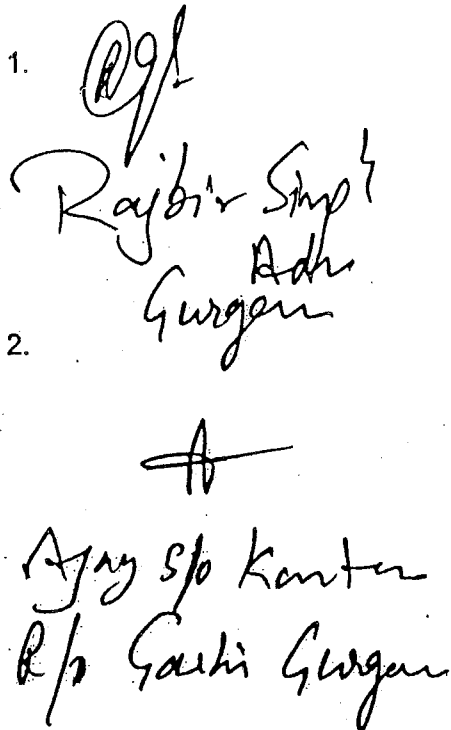 1.
Rajbir Singh
Adv
Gurgaon
2.
Ajay S/o Kantu
R/o Gurgaon